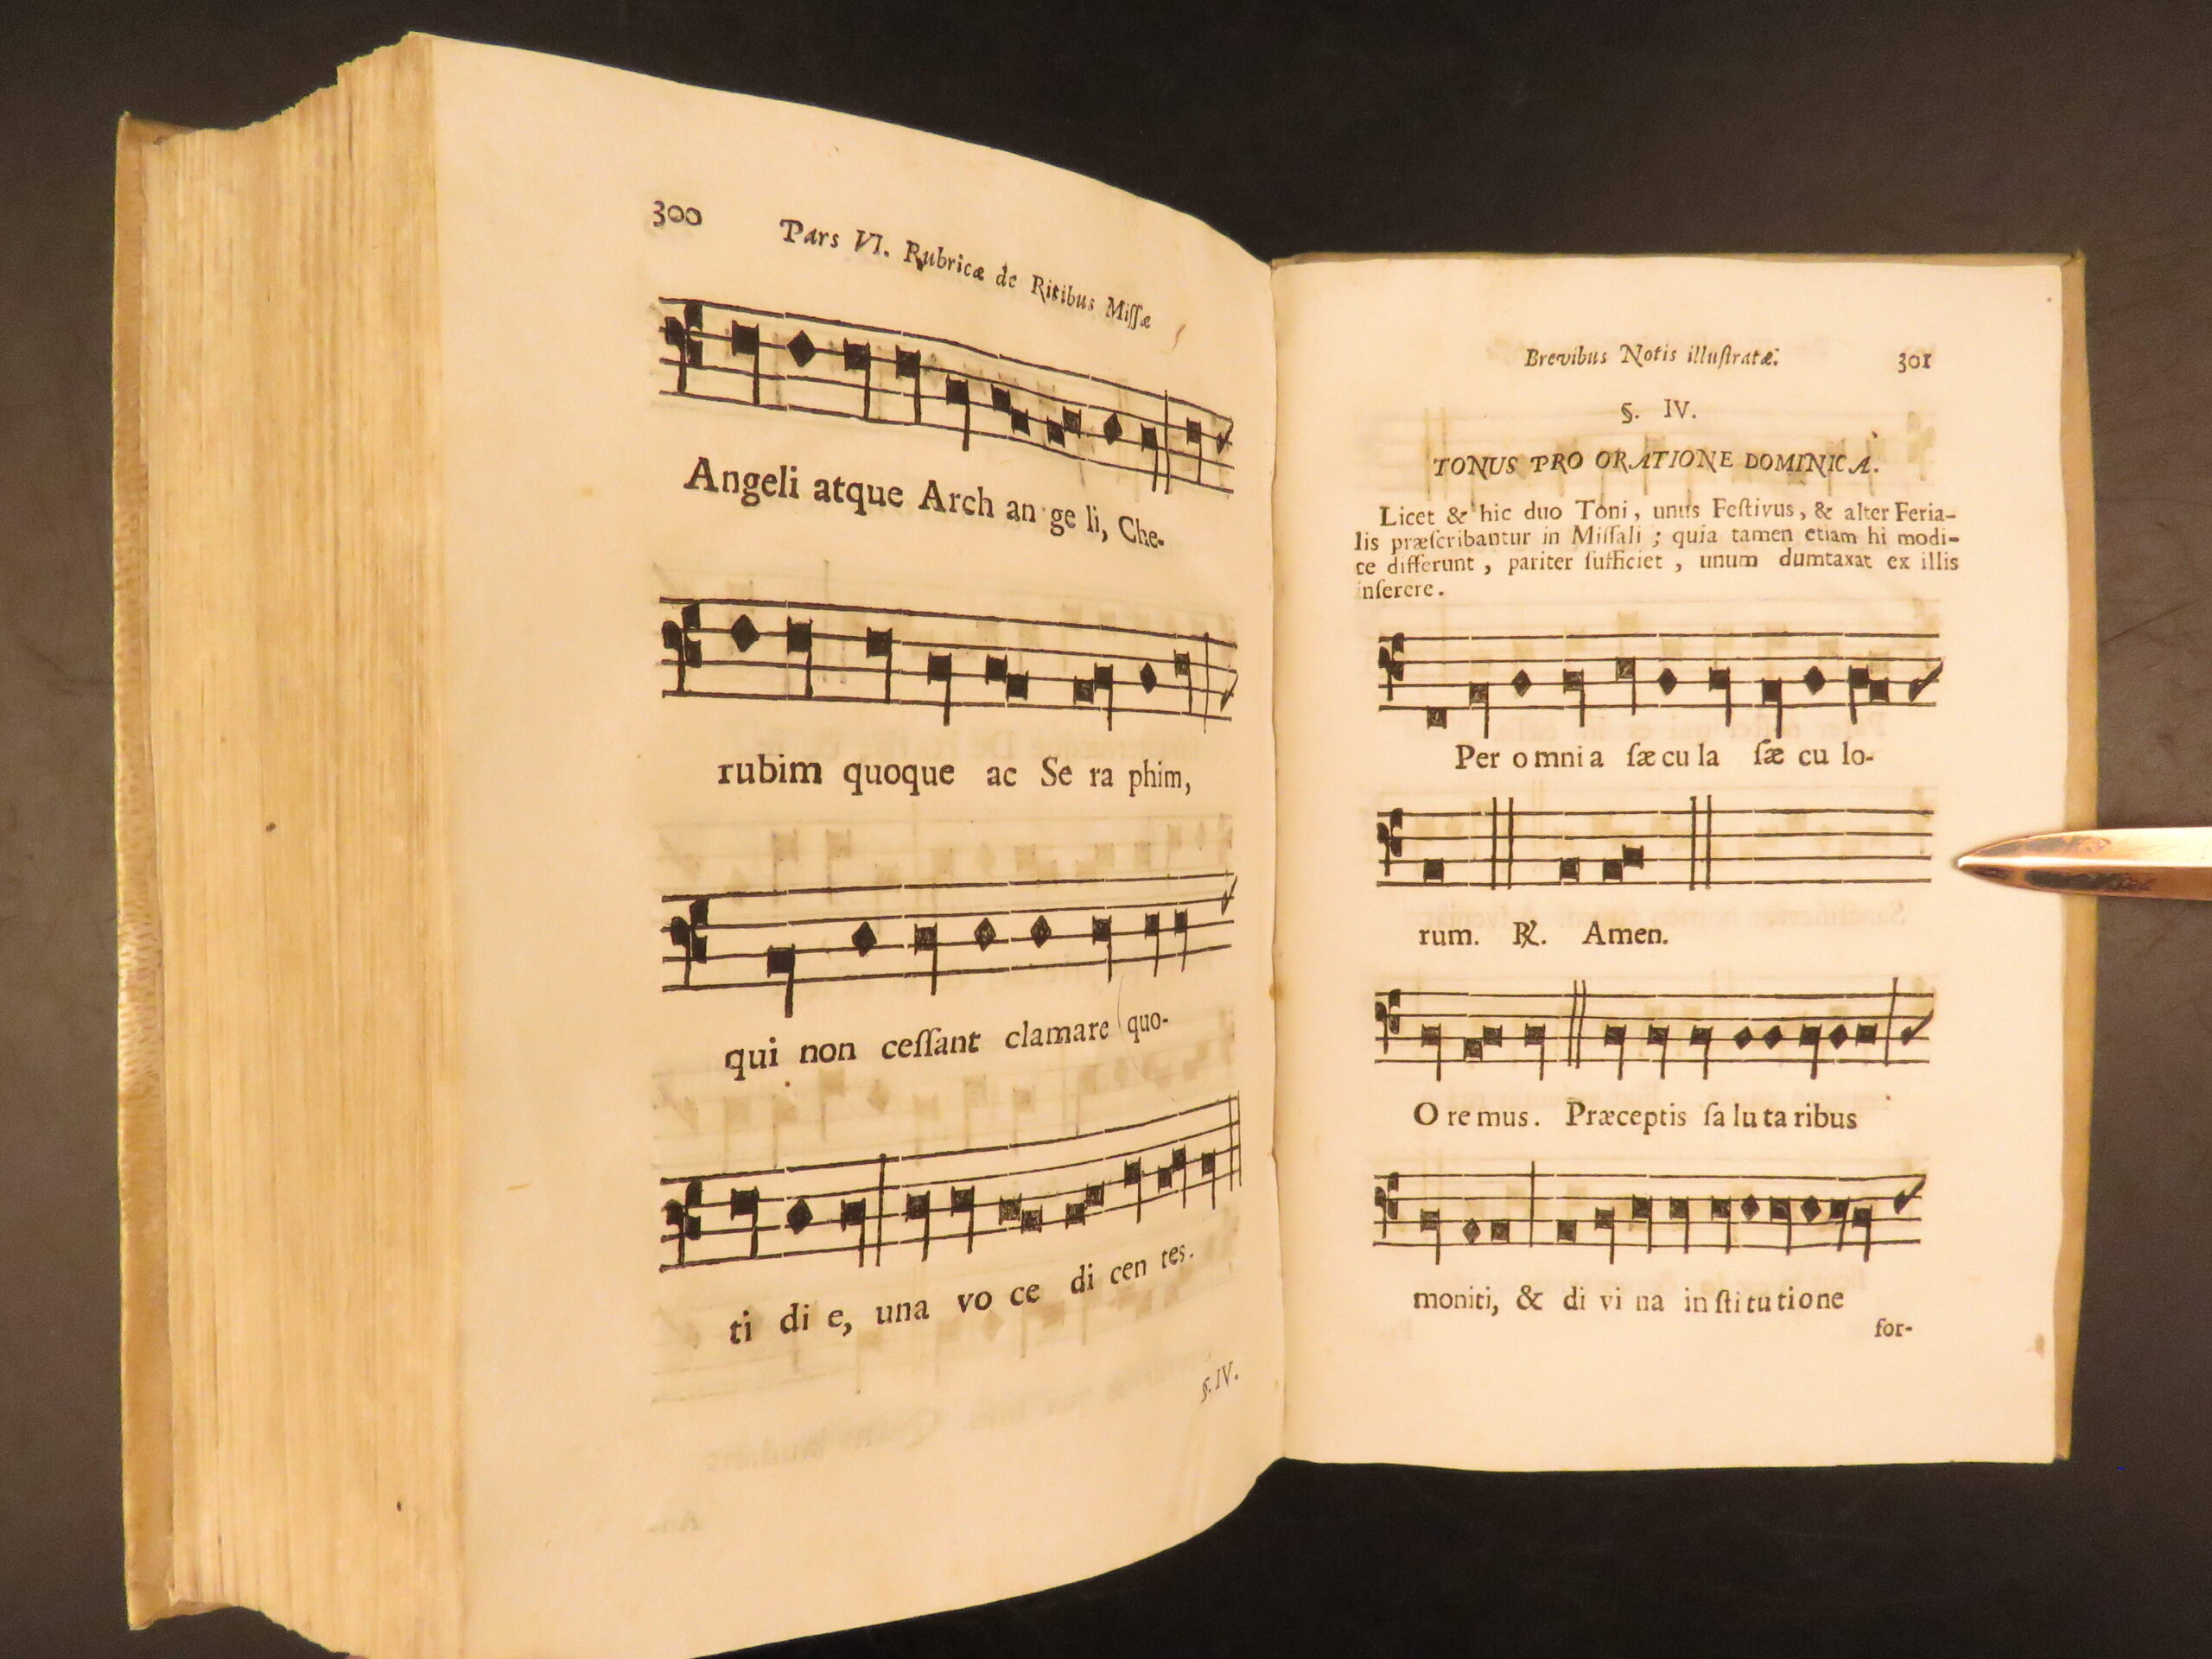 300 Pars VI. Rubricæ de Ritibus Miſſæ
Angeli atque Arch an ge li, Che-
rubim quoque ac Se ra phim,
qui non ceſſant clamare quo-
ti di e, una vo ce di cen tes.
§. IV.
Brevibus Notis illuſtratæ. 301
§. IV.
TONUS PRO ORATIONE DOMINICA.
Licet & hic duo Toni, unus Feſtivus, & alter Feria-
lis præſcribantur in Miſſali ; quia tamen etiam hi modi-
ce differunt , pariter ſufficiet , unum dumtaxat ex illis
inſerere.
Per o mni a ſæ cu la ſæ cu lo-
rum. ℟. Amen.
O re mus. Præceptis ſa lu ta ribus
moniti, & di vi na in ſti tu tione
for-